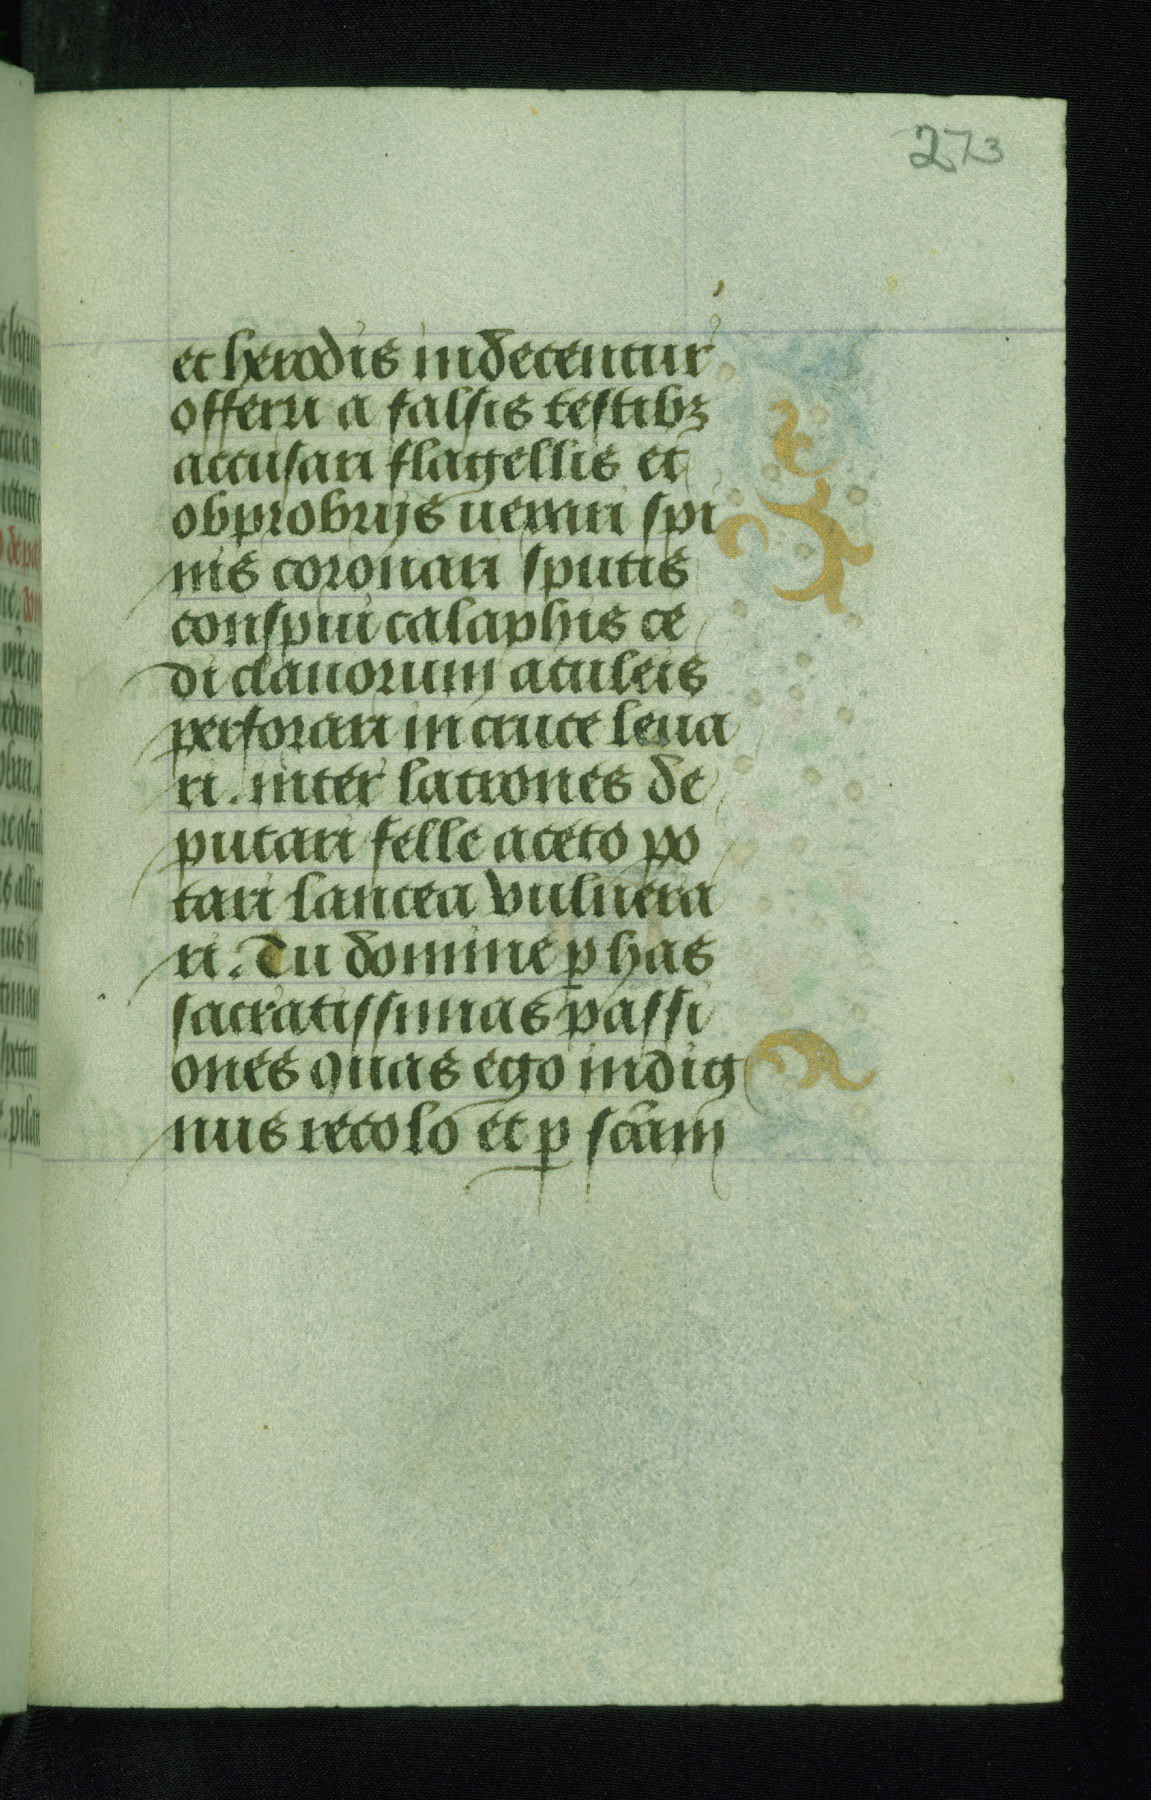 273
et herodis indecentur
offerri a falsis testibꝫ
accusari flagellis et
obprobrijs uexari spi
nis coronari sputis
conspui calaphis ce
di clauorum aculeis
perforari in cruce leua
ri. inter latrones de
putari felle aceto po
tari lancea vulnera
ri. Tu domine ꝑ has
sacratissimas passi
ones quas ego indig
nus recolo et ꝑ scãm